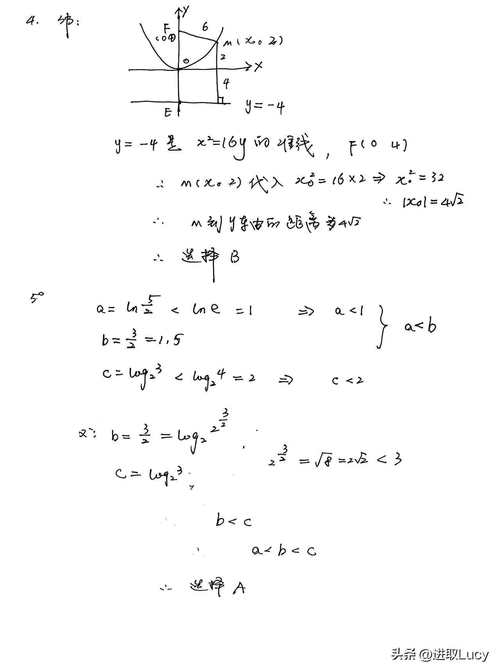 4. 解:
y
F
(0 4)
6
M(x₀ 2)
2
0
x
4
E
y=-4
y=-4是 x²=16y 的准线, F(0 4)
∴ M(x₀ 2)代入 x₀²=16×2 ⇒ x₀²=32
∴ |x₀|=4√2
∴ M到y轴的距离为4√2
∴ 选择 B
5°
a=ln 5/2 < ln e = 1 ⇒ a<1
b=3/2=1.5
a<b
c=log₂3 < log₂4 = 2 ⇒ c<2
又∵ b=3/2=log₂2^(3/2)
2^(3/2)=√8=2√2<3
c=log₂3
b<c
a<b<c
∴ 选择 A
头条 @进取Lucy